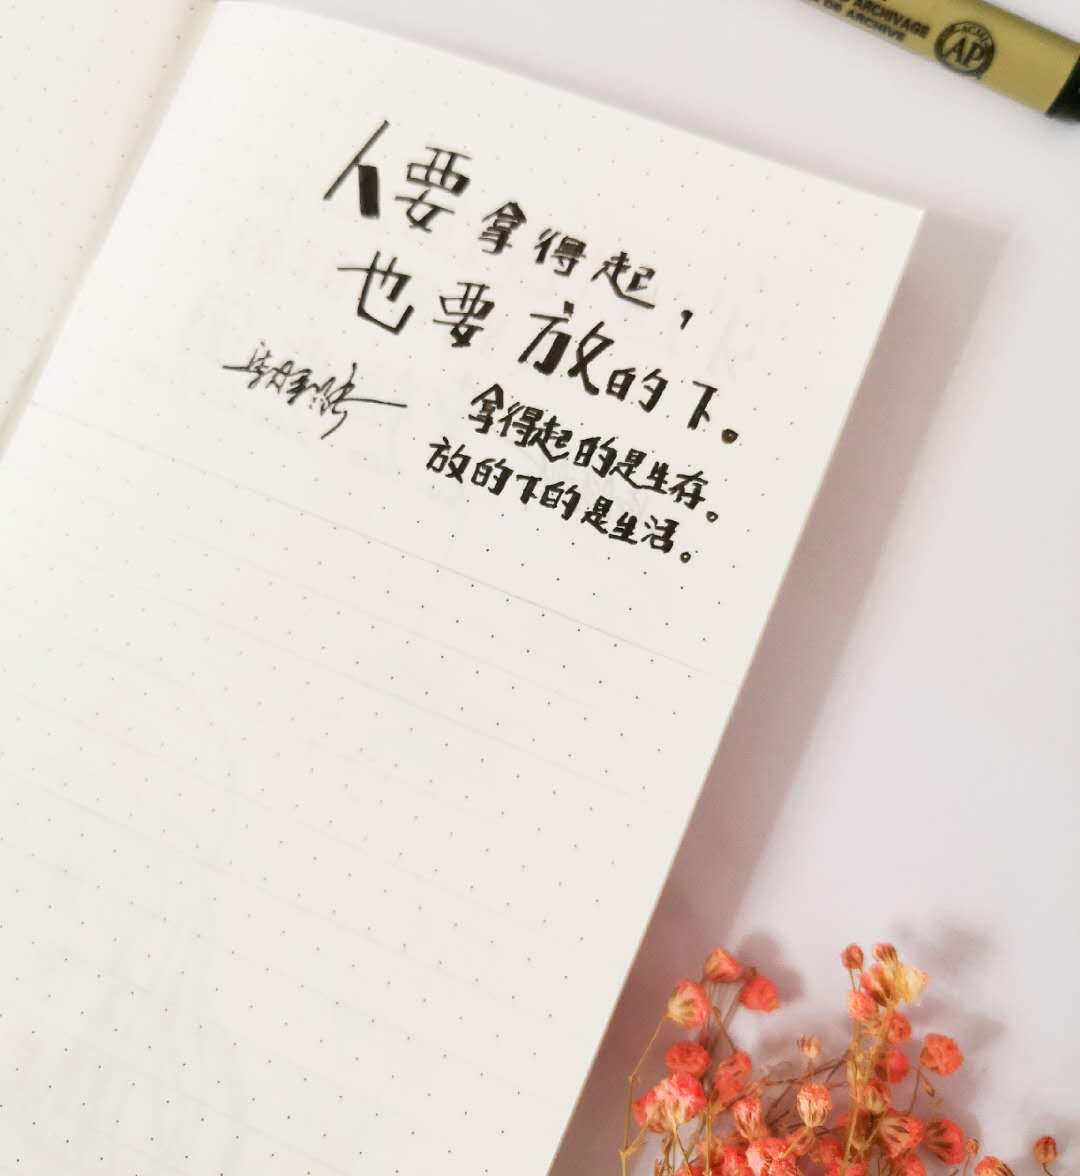 ARCHIVAGE
DE ARCHIVE
ACMI
AP
人要拿得起，
也要放的下。
拿得起的是生存。
放的下的是生活。